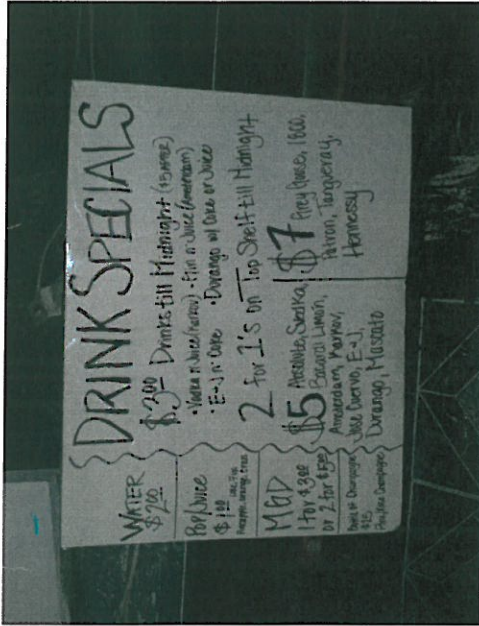 DRINK SPECIALS
$3.00 Drinks till Midnight ($5 AFTER)
• Vodka n Juice (Markov) • Gin n Juice (Amsterdam)
• E-J n' Coke • Durango w/ Coke or Juice
2 for 1's on Top Shelf till Midnight
$5 Absolute, Svedka,
Bacardi Limón,
Amsterdam, Markov,
Jose Cuervo, E-J,
Durango, Moscato
$7 Grey Goose, 1800,
Patron, Tangueray,
Hennessy
WATER
$2.00
Pop/Juice
$1.00
Pineapple, orange, cran
MGD
1 for $3.00
or 2 for $5.00
Bottle of Champagne
$15
Champagne